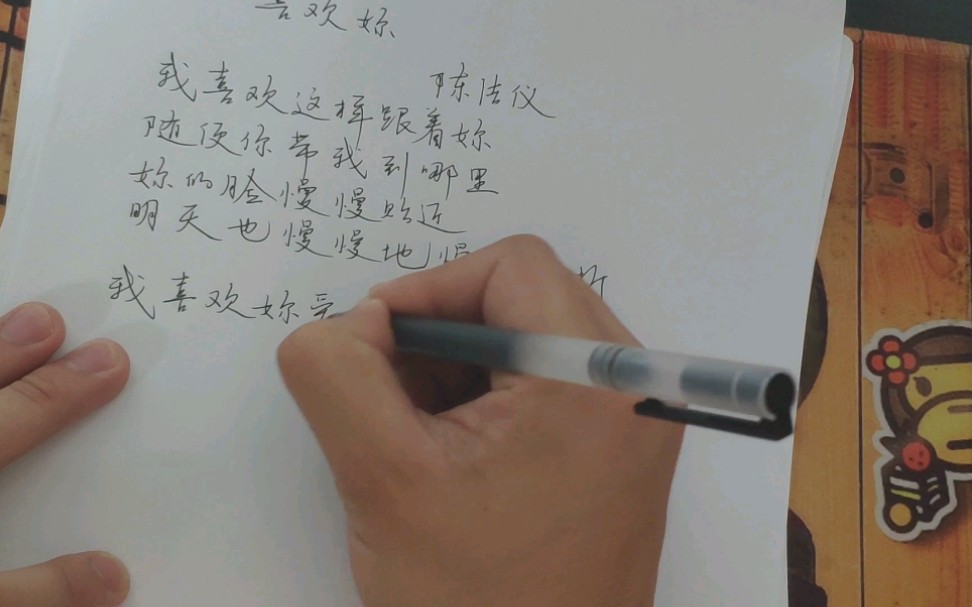 喜欢妳
陈洁仪
我喜欢这样跟着妳
随便你带我到哪里
妳的脸慢慢贴近
明天也慢慢地慢
晰
我喜欢妳